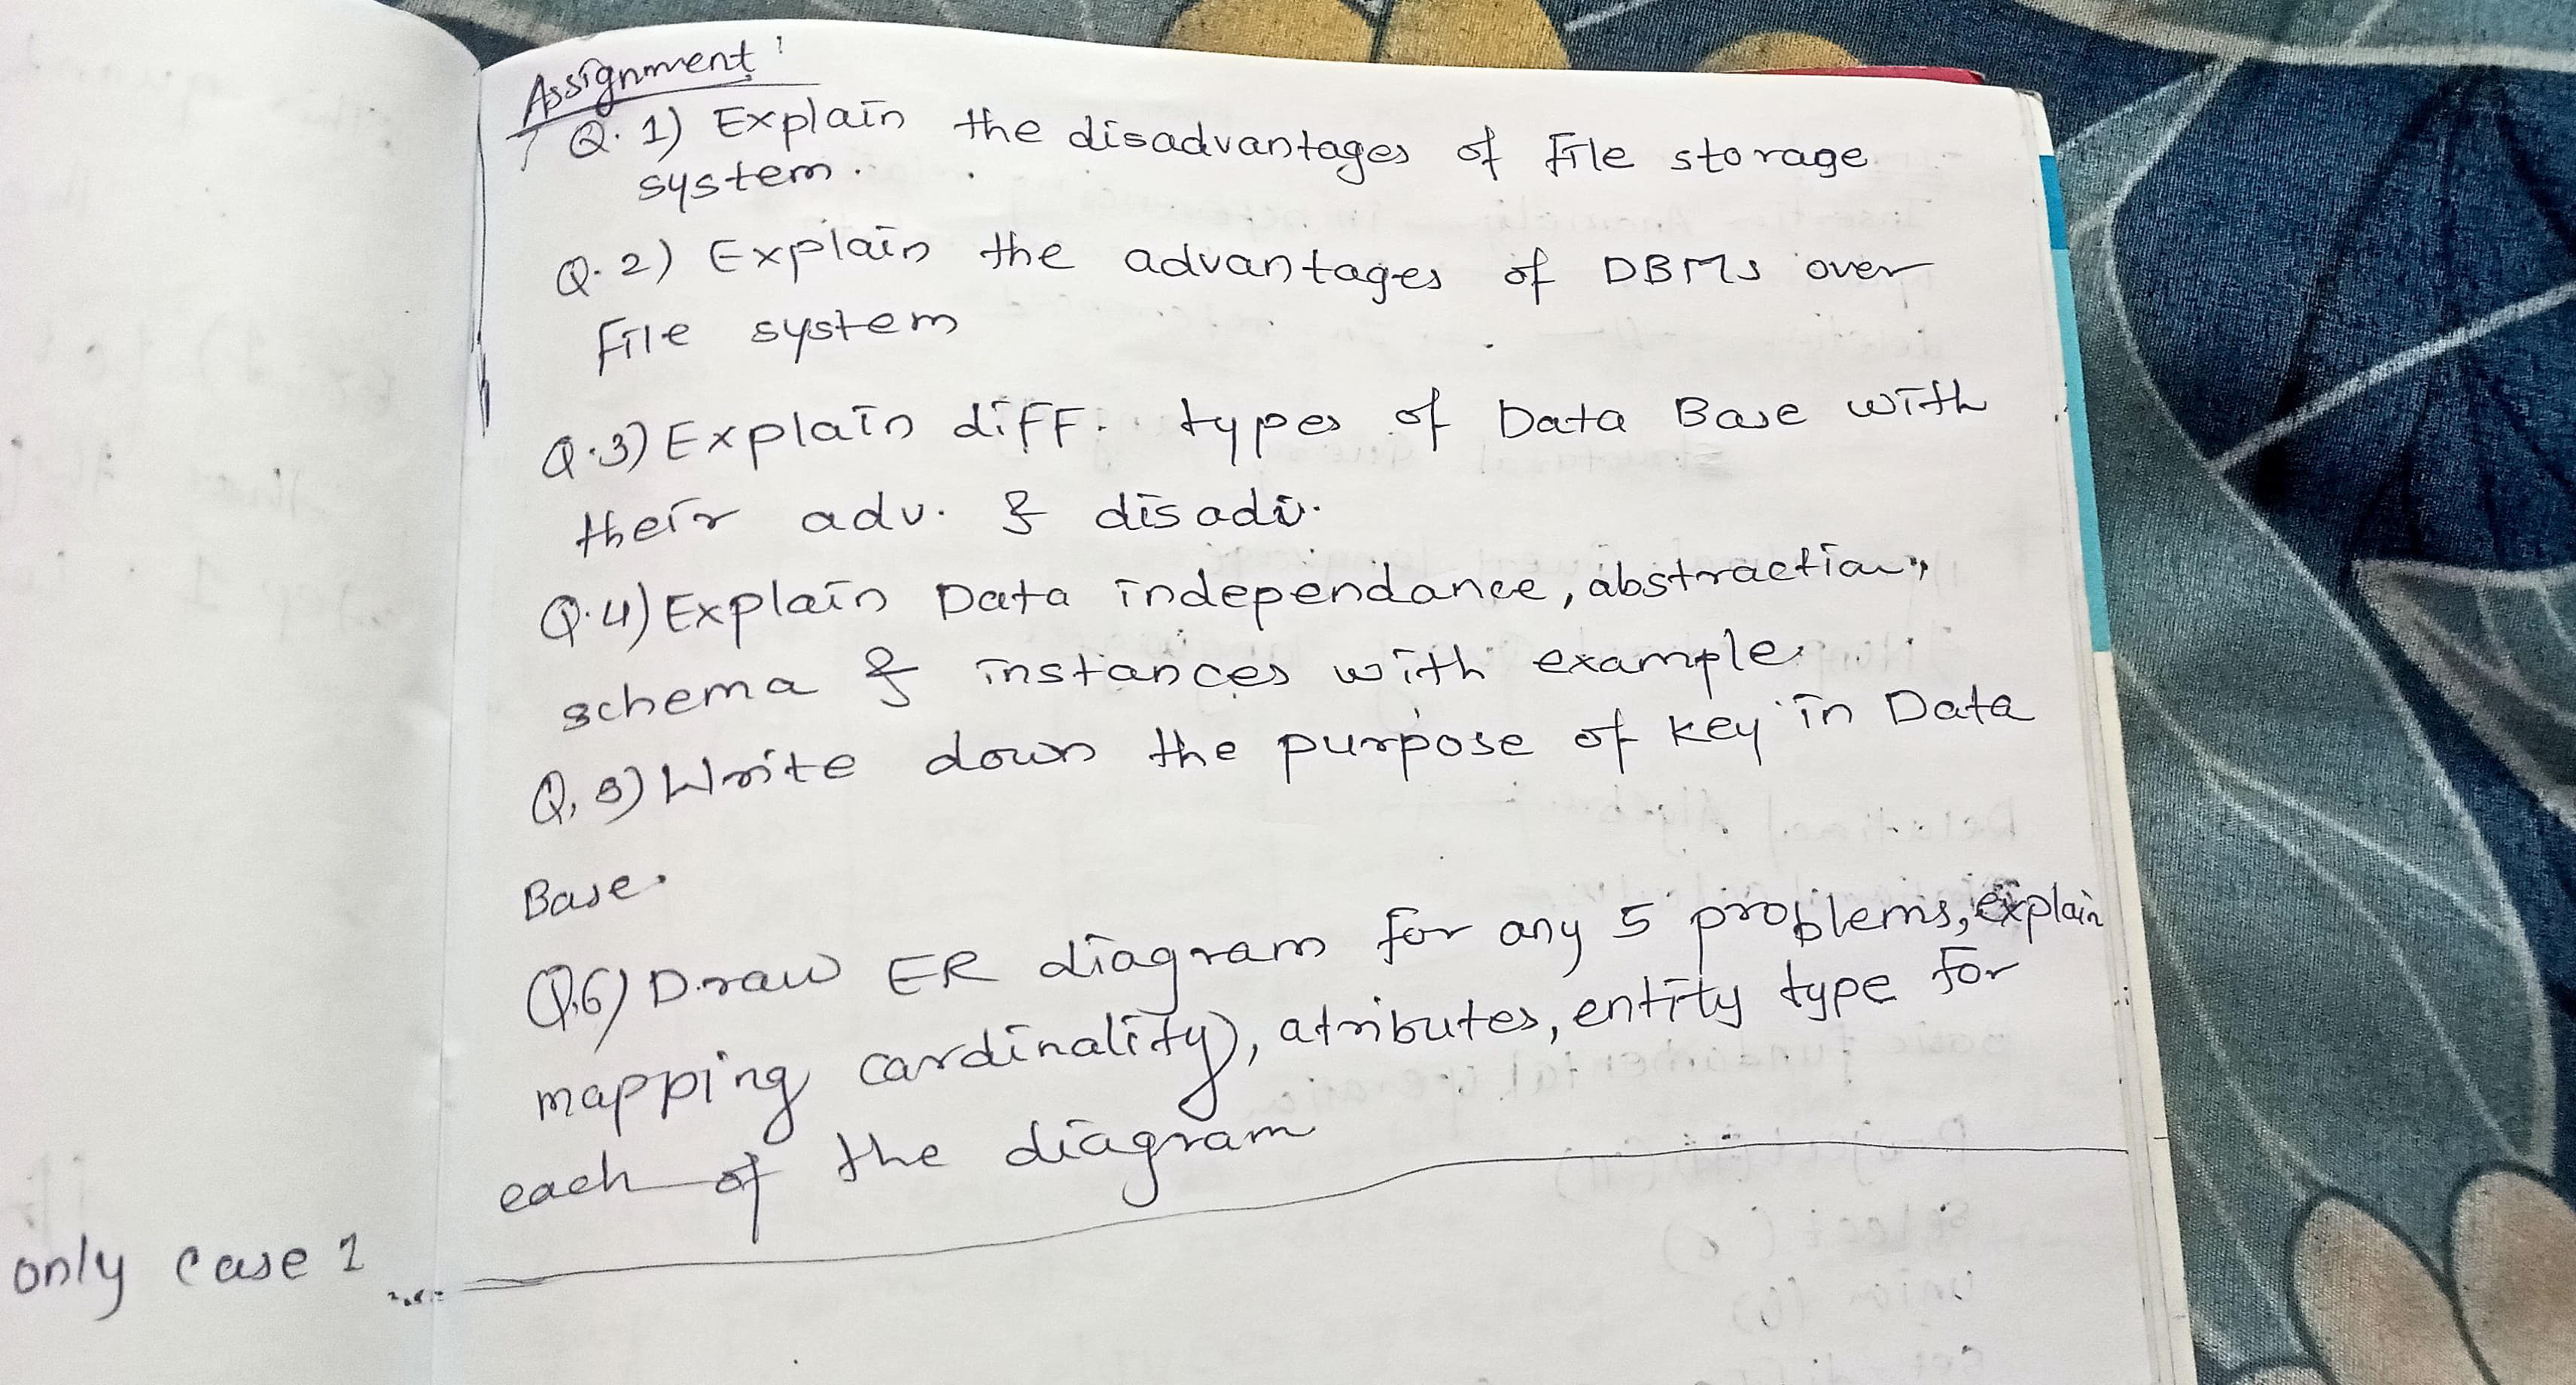 Assignment:
Q.1) Explain the disadvantages of File storage
system.
Q.2) Explain the advantages of DBMS over
File system
Q.3) Explain diff. types of Data Base with
their adv. & disadv.
Q.4) Explain Data independance, abstraction,
schema & instances with example.
Q.5) Write down the purpose of key in Data
Base.
Q.6) Draw ER diagram for any 5 problems, explain
mapping cardinality), atributes, entity type for
each of the diagram
only case 1